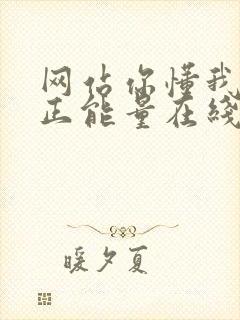 网站你懂我
正能量在线
暖夕夏